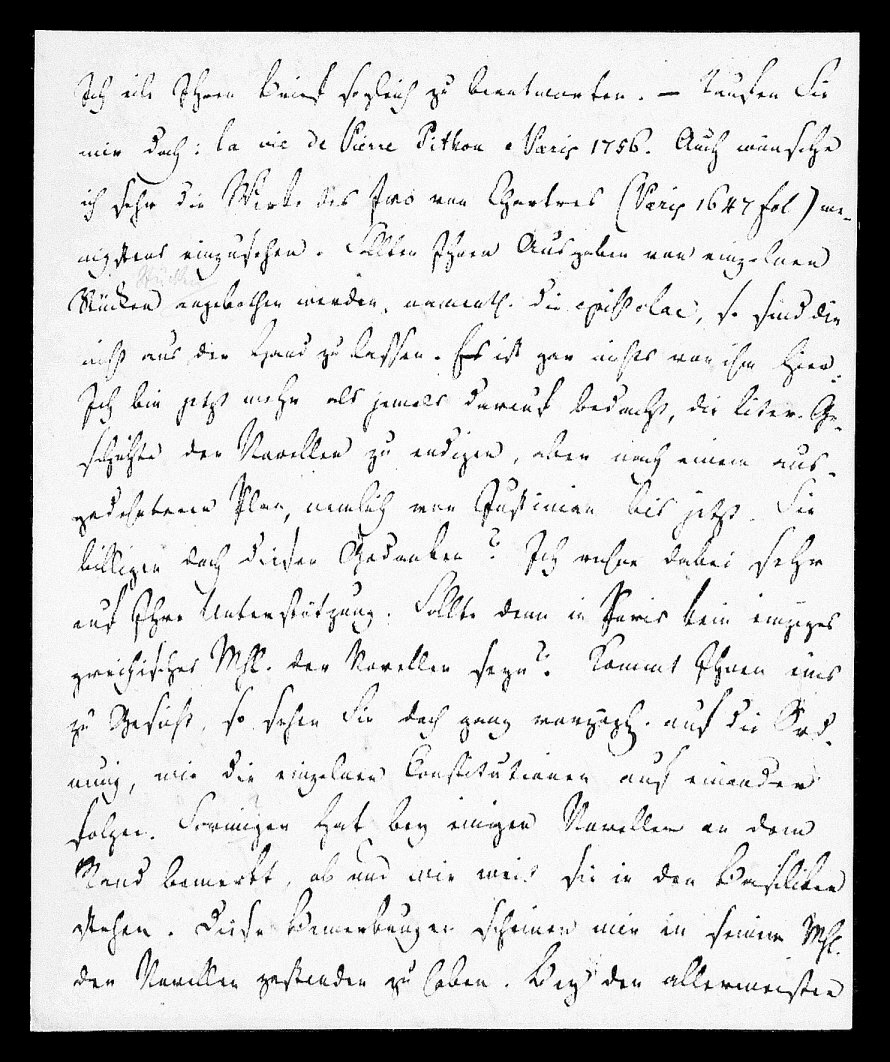 Ich eile Ihren Brief sogleich zu beantworten. — Kaufen Sie
mir doch: la vie de Pierre Pithou Paris 1756. Auch wünschte
ich sehr die Werke des Ivo von Chartres (Paris 1647 fol) we-
nigstens einzusehen. Sollten Ihnen Ausgaben von einzelnen
Stücken angebothen werden, namentl. die epistolae, so sind die
nicht aus der Hand zu lassen. Es ist gar nichts von ihm hier.
Ich bin jetzt mehr als jemals darauf bedacht, die liter. Ge-
schichte der Novellen zu endigen, aber nach einem aus-
gedehnteren Plan, nemlich von Justinian bis jetzt. Sie
billigen doch diesen Gedanken? Ich rechne dabei sehr
auf Ihre Unterstützung. Sollte denn in Paris kein einziges
griechisches Mst. der Novellen seyn? Kommt Ihnen eins
zu Gesicht, so sehen Sie doch ganz vorzügl. auf die Ord-
nung, wie die einzelnen Constitutionen auf einander
folgen. Scrimger hat bey einigen Novellen an dem
Rand bemerkt, ob und wie weit sie in den Basiliken
stehen. Diese Bemerkungen scheinen mir in seinem Mst.
der Novellen gestanden zu haben. Bey den allermeisten